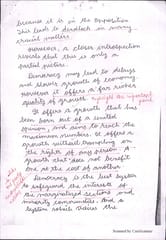 because it is in the opposition
This leads to deadlock in many
crucial matters.
However, a closer introspection
reveals that this is only a
partial picture.
Democracy may lead to delays
and slower growth of economy
however it offers a far richer
quality of growth
It offers a growth that has
been born out of a united
opinion, and aims to reach the
maximum number. It offers a
growth without trampling on
the rights of any person. A
growth that does not benefit
one at the cost of another
Democracy is the best system
to safeguard the interests of
marginalized sections and
minority communities. And a
system which values the
Scanned by CamScanner